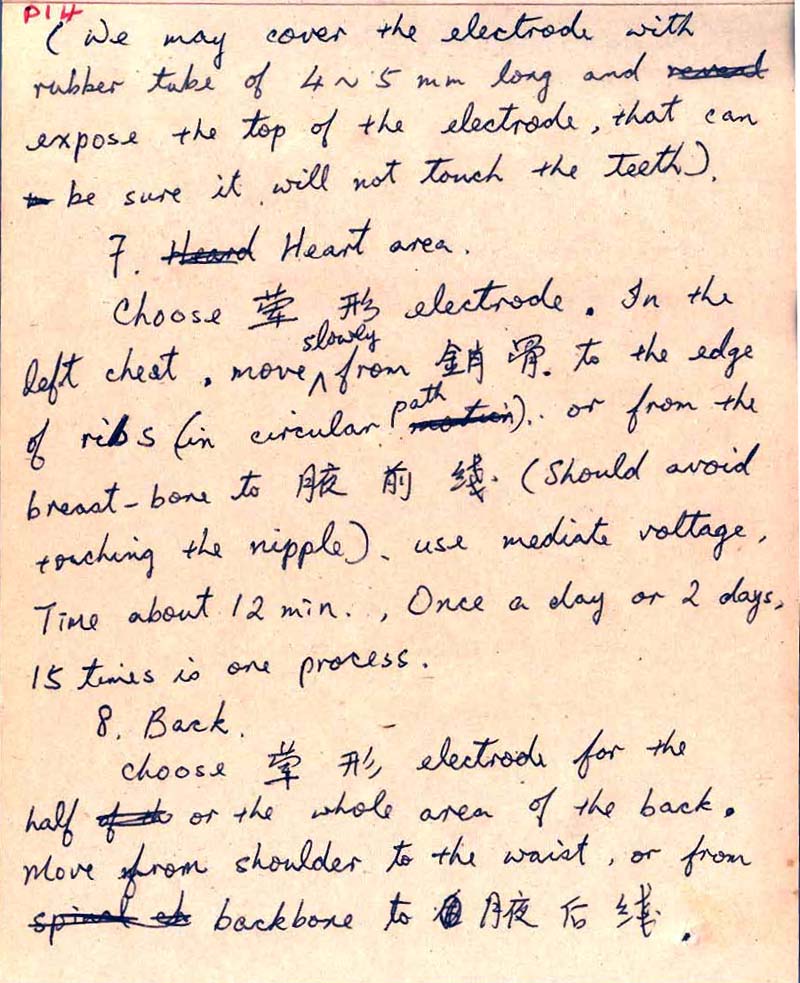 P14
(We may cover the electrode with
rubber tube of 4~5 mm long and reveal
expose the top of the electrode, that can
be sure it will not touch the teeth).
7. Heard Heart area.
Choose 蕈 形 electrode. In the
slowly
left chest, move from 銷 骨. to the edge
path
of ribs (in circular motion). or from the
breast-bone to 腋 前 线. (Should avoid
touching the nipple). use mediate voltage,
Time about 12 min., Once a day or 2 days,
15 times is one process.
8. Back.
choose 蕈 形 electrode for the
half of th or the whole area of the back.
Move from shoulder to the waist, or from
spinal backbone to 腋 后 线.